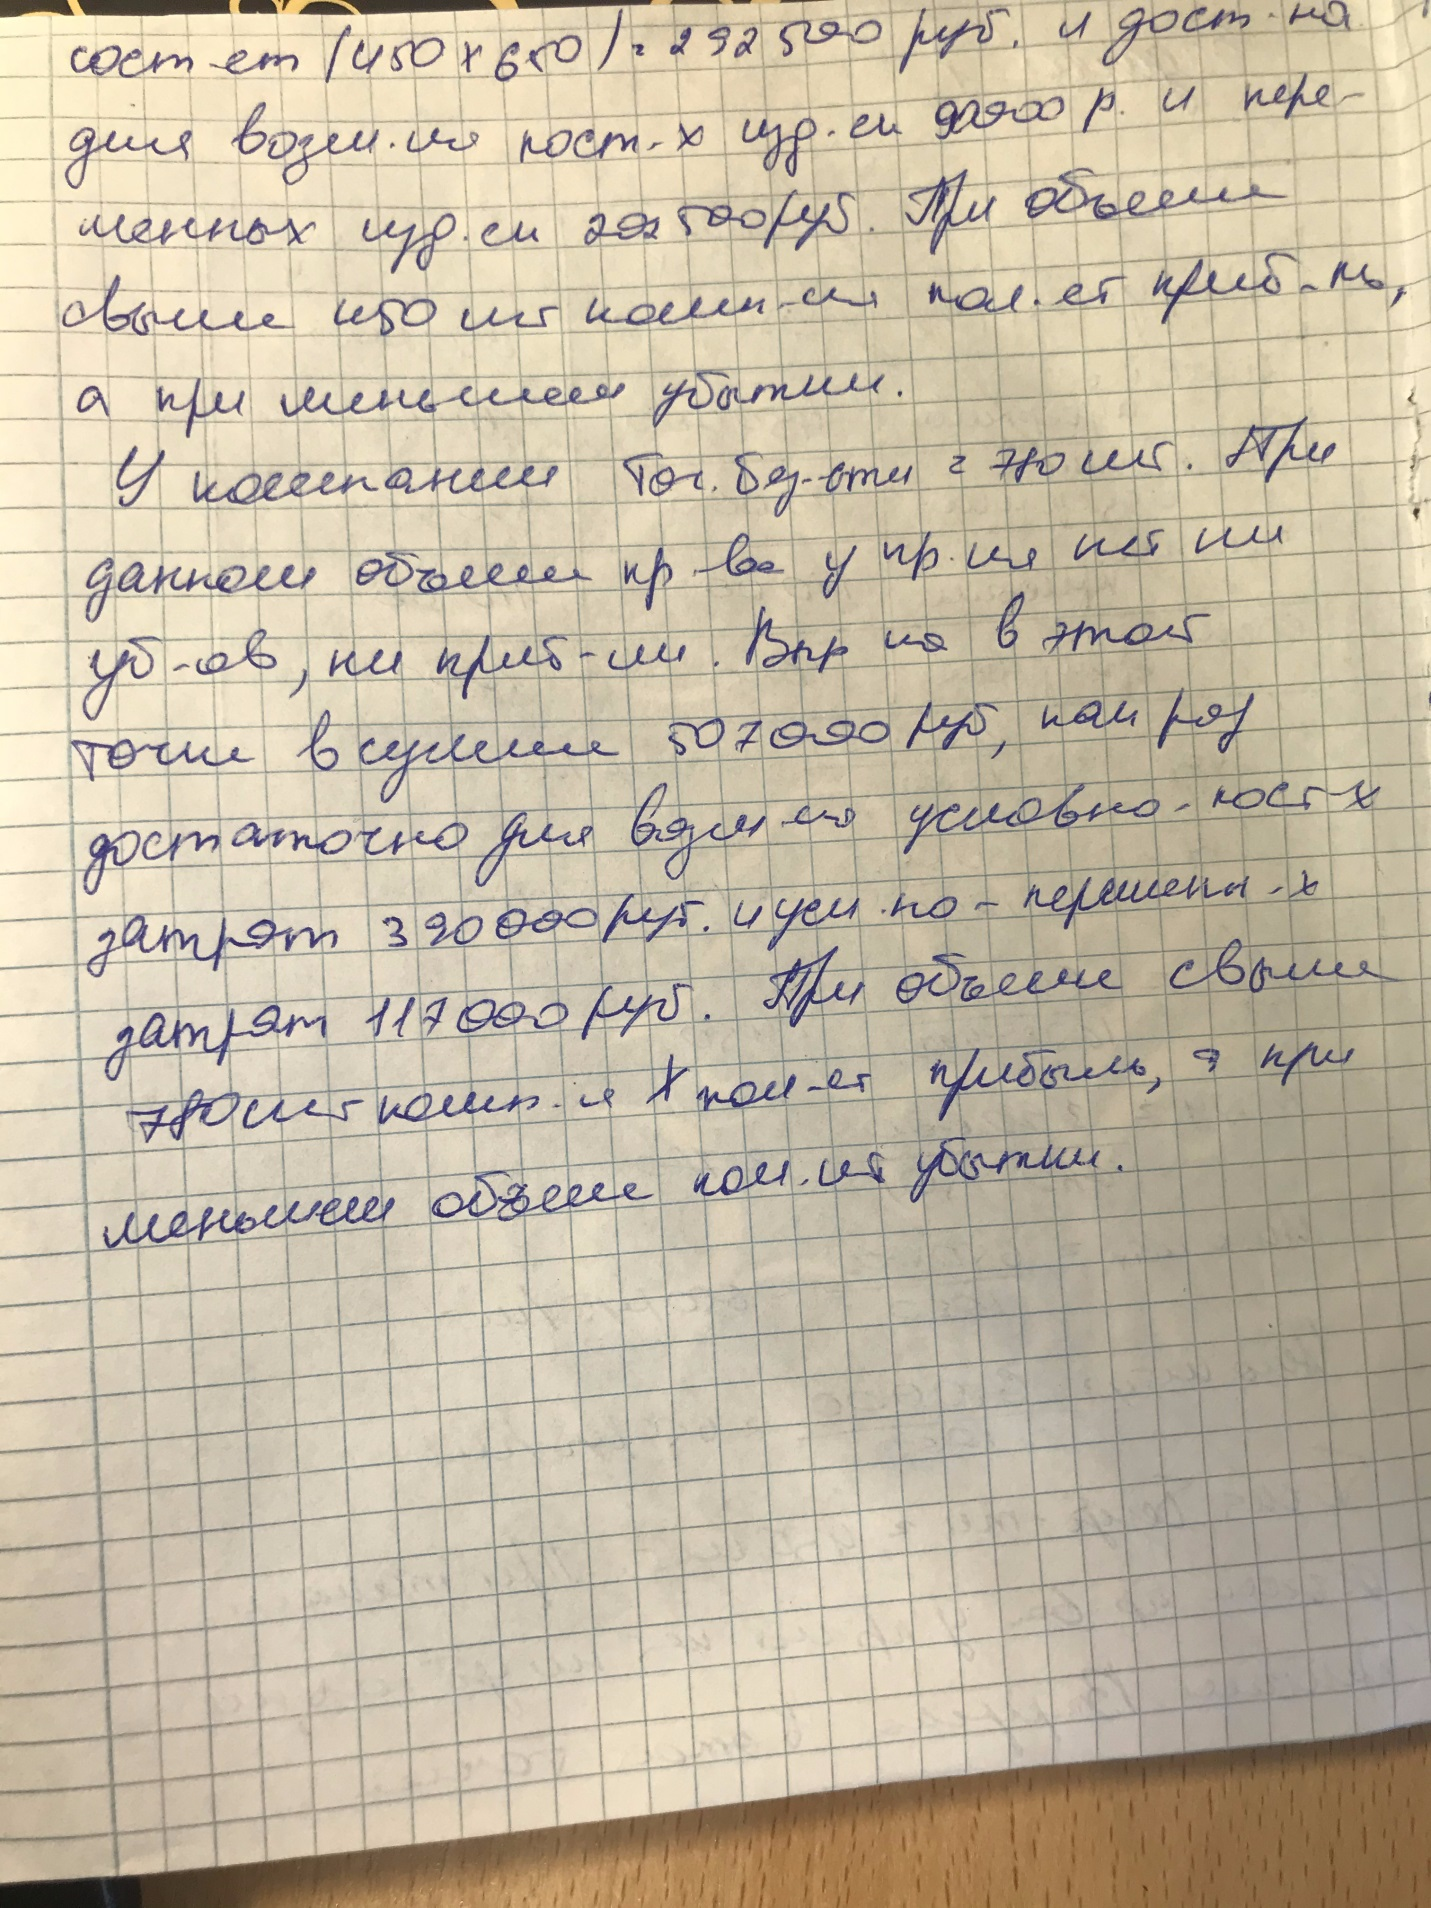 сост-ет (450 х 650) = 292 500 руб. и дост-на
для возм-ия пост-х изд-ек 90000 р. и пере-
менных изд-ек 202 500 руб. При объеме
свыше 450 шт комп-ия пол-ет приб-ль,
а при меньшем убытки.
У компании Точ. без-сти = 780 шт. При
данном объеме пр-ва у пр-ия нет ни
уб-ов, ни приб-ли. Выр-ка в этой
точке в сумме 507000 руб, как раз
достаточно для возм-ия условно-пост-х
затрат 390 000 руб. и усл-но-переменн-х
затрат 117000 руб. При объеме свыше
780 шт комп-я Х пол-ет прибыль, а при
меньшем объеме пол-ит убытки.